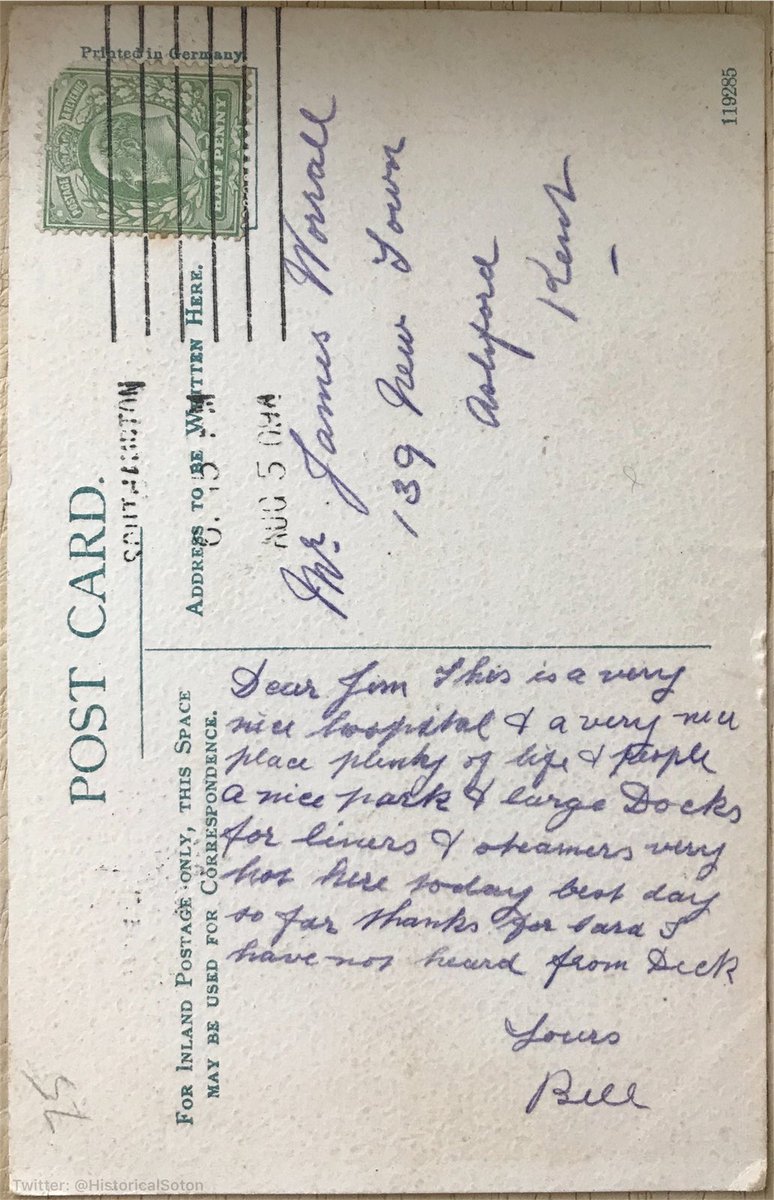 POST CARD.
FOR INLAND POSTAGE ONLY, THIS SPACE
MAY BE USED FOR CORRESPONDENCE.
ADDRESS TO BE WRITTEN HERE.
Printed in Germany.
POSTAGE REVENUE
HALF PENNY
SOUTHAMPTON
AUG 5 09
Dear Jim This is a very
nice hospital & a very nice
place plenty of life & people
a nice park & large Docks
for liners & steamers very
hot here today best day
so far thanks for card I
have not heard from Dick
Yours
Bill
Mr. James Worrall
139 New Town
Ashford
Kent
119285
75
Twitter: @HistoricalSoton